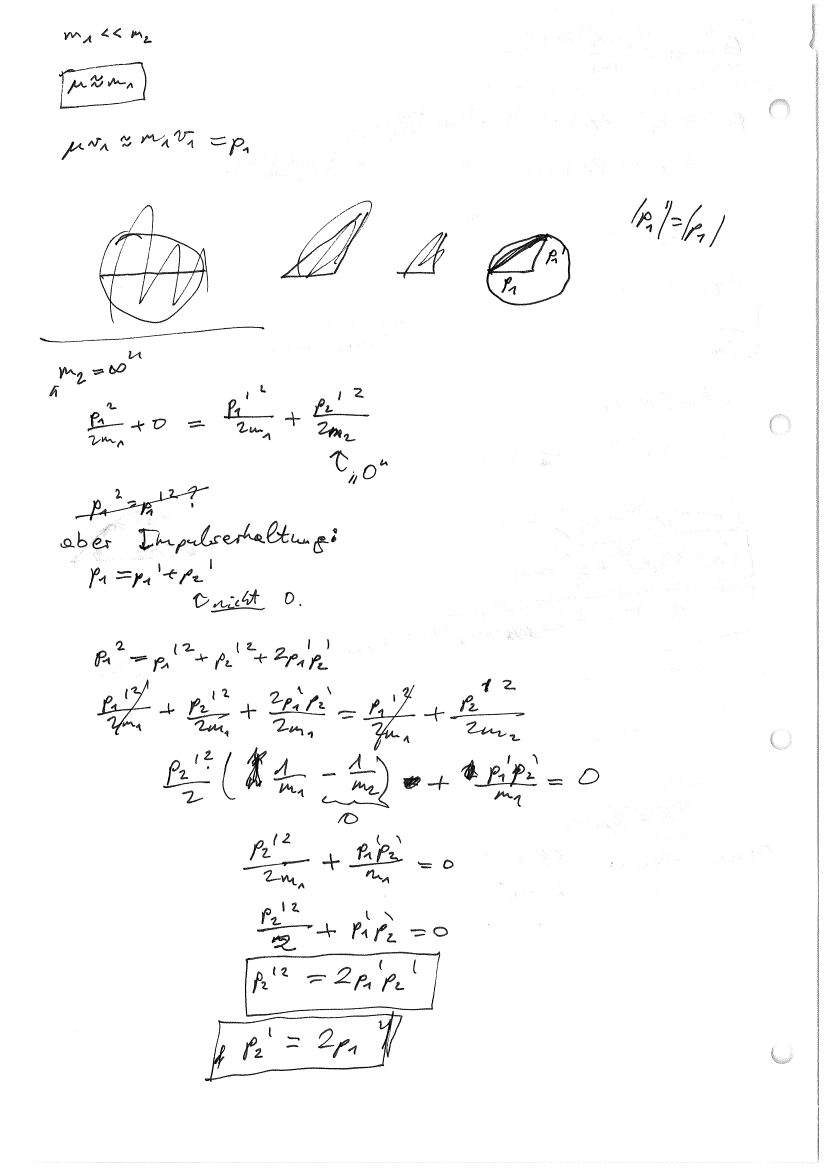 m₁ << m₂
μ ≈ m₁
μv₁ ≈ m₁v₁ = p₁
|p₁'| = |p₁|
p₁ p₁'
„m₂ = ∞"
p₁²/2m₁ + 0 = p₁'²/2m₁ + p₂'²/2m₂
↑ „0"
p₁² = p₁'² ?
aber Impulserhaltung:
p₁ = p₁' + p₂'
↑ nicht 0.
p₁² = p₁'² + p₂'² + 2p₁'p₂'
p₁'²/2m₁ + p₂'²/2m₁ + 2p₁'p₂'/2m₁ = p₁'²/2m₁ + p₂'²/2m₂
p₂'²/2 (1/m₁ - 1/m₂) + p₁'p₂'/m₁ = 0
0
p₂'²/2m₁ + p₁'p₂'/m₁ = 0
p₂'²/2 + p₁'p₂' = 0
p₂'² = 2p₁'p₂'
p₂' = 2p₁